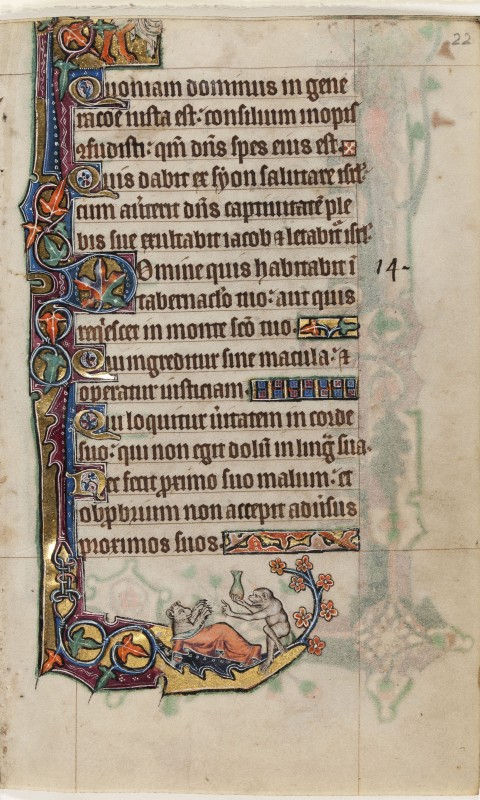 22
Quoniam dominus in gene
racōe iusta est: consilium inopis
ꝯfudisti: qm̄ dn̄s spes eius est.
Quis dabit ex syon salutare isrl:
cum aūterit dn̄s captiuitatē ple
bis sue exultabit iacob ⁊ letabit̄ isrl.
Domine quis habitabit ī
14
tabernaclo tuo: aut quis
reqͥescet in monte scō tuo.
Qui ingreditur sine macula: ⁊
operatur iusticiam
Qui loquitur ūitatem in corde
suo: qui non egit dolū in lingᷓ sua.
Nec fecit ꝓximo suo malum: et
obꝓbrium non accepit adūsus
proximos suos.